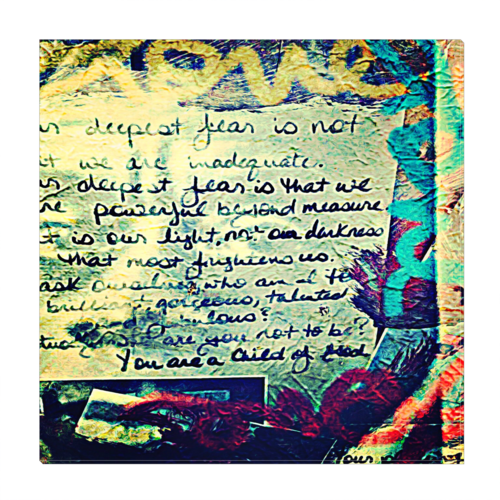 r deepest fear is not
t we are inadequate.
r deepest fear is that we
re powerful beyond measure
t is our light, not our darkness
that most frightens us.
ask ourselves, who am I to
brilliant gorgeous, talented
are you not to be?
You are a Child of God
Your